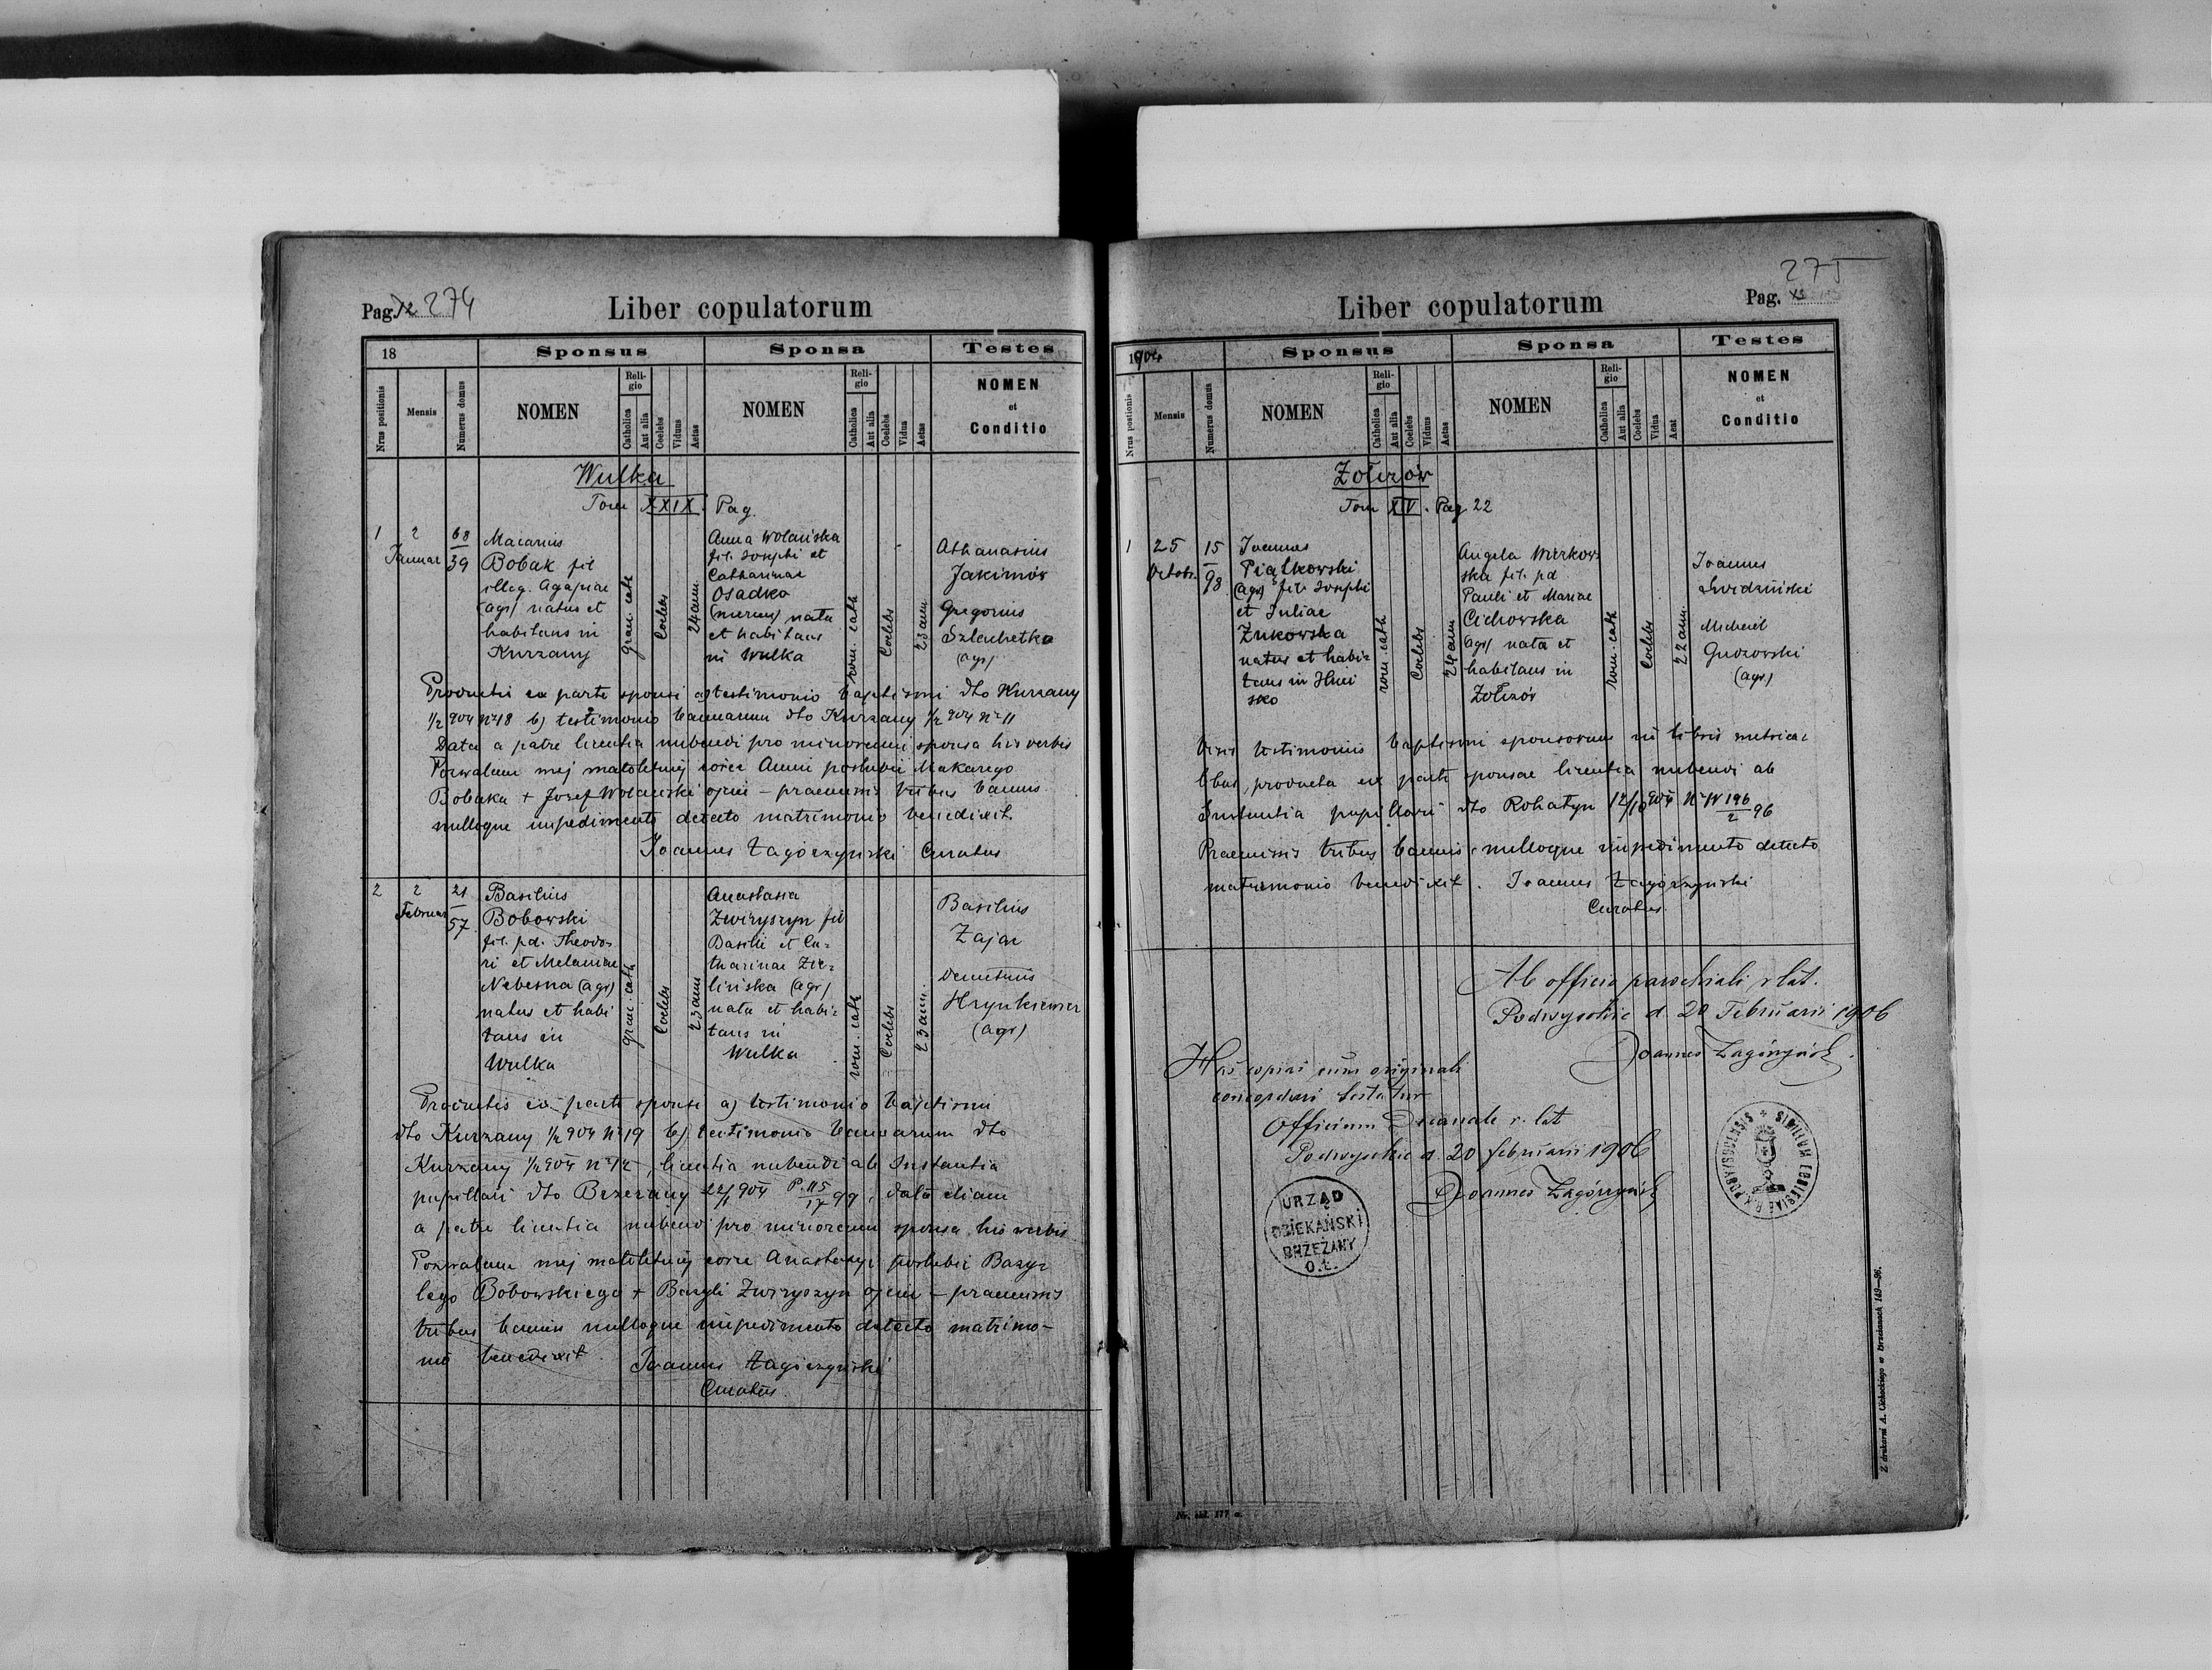 Pag. 12 274
Liber copulatorum
18
Sponsus
Sponsa
Testes
Nrus positionis
Mensis
Numerus domus
NOMEN
Religio
Catholica
Aut alia
Coelebs
Viduus
Aetas
NOMEN
Religio
Catholica
Aut alia
Coelebs
Vidua
Aetas
NOMEN
et
Conditio
Wulka
Tom XXIX. Pag.
1
2
Januar
68
39
Macarius
Bobak fil
illeg. Agapiae
(agr) natus et
habitans in
Kurzany
graec. cath
Coelebs
24 ann
Anna Wolańska
fil. Josephi et
Catharinae
Osadko
nata
et habitans
in Wulka
rom. cath
Coelebs
23 ann
Athanasius
Jakimów
Gregorius
Szlachetko
(agr)
Productis ex parte sponsi a) testimonio baptismi dto Kurzany
1/2 904 Nr 18 b) testimonio bannorum dto Kurzany 1/2 904 Nr 11
Data a patre licentia nubendi pro minorenni sponsa his verbis
Pozwalam mej małoletniej córce Annie poślubić Makarego
Bobaka + Józef Wolański ojciec – praemissis tribus bannis
nulloque impedimento detecto matrimonio benedixit.
Joannes Zagórzyński Curatus
2
2
Februar
21
57
Basilius
Bobowski
fil. pd. Theodo-
ri et Melaniae
Nebesna (agr)
natus et habi
tans in
Wulka
graec. cath
Coelebs
23 ann
Anastasia
Zwiryszyn fil
Basilii et Ca-
tharinae Zie-
lińska (agr)
nata et habi-
tans in
Wulka
rom. cath
Coelebs
23 ann.
Basilius
Zając
Demetrius
Hrynkiewicz
(agr)
Productis ex parte sponsi a) testimonio baptismi
dto Kurzany 1/2 904 Nr 19 b) testimonio bannorum dto
Kurzany 1/2 904 Nr 12, licentia nubendi ab Instantia
pupillari dto Brzeżany 22/1 904 P. 115/17 99, data etiam
a patre licentia nubendi pro minorenni sponsa his verbis
Pozwalam mej małoletniej córce Anastazyi poślubić Bazy-
lego Bobowskiego + Bazyli Zwiryszyn ojciec – praemissis
tribus bannis nulloque impedimento detecto matrimo-
nio benedixit. Joannes Zagórzyński
Curatus.
275
Liber copulatorum
Pag.
1904
Sponsus
Sponsa
Testes
Nrus positionis
Mensis
Numerus domus
NOMEN
Religio
Catholica
Aut alia
Coelebs
Viduus
Aetas
NOMEN
Religio
Catholica
Aut alia
Coelebs
Vidua
Aeat
NOMEN
et
Conditio
Żołczów
Tom XV. Pag 22
1
25
Octobr.
15
98
Joannes
Piątkowski
(agr) fil. Josephi
et Juliae
Żukowska
natus et habi-
tans in Hnil
sko
rom. cath
Coelebs
24 ann
Angela
ska fil. pd
Pauli et Mariae
Cichowska
(agr) nata et
habitans in
Żołczów
rom. cath
Coelebs
22 ann
Joannes
Michael
(agr)
Visis testimoniis baptismi sponsorum in libris metrica-
libus, producta ex parte sponsae licentia nubendi ab
Instantia pupillari dto Rohatyn 12/10 904 Nr IV 196/2 96
Praemissis tribus bannis nulloque impedimento detecto
matrimonio benedixit. Joannes Zagórzyński
Curatus.
Ab officio parochiali r lat.
Podwysokie d. 20 Februarii 1906
Joannes Zagórzyński.
Has copias cum originali
concordari testatur
Officium Decanale r. lat
Podwysokie d. 20 februarii 1906
Joannes Zagórzyński
URZĄD
DZIEKAŃSKI
BRZEŻANY
O. Ł.
Nr. skł. 177 a.
Z drukarni A. Cichockiego w Brzeżanach 149—96.